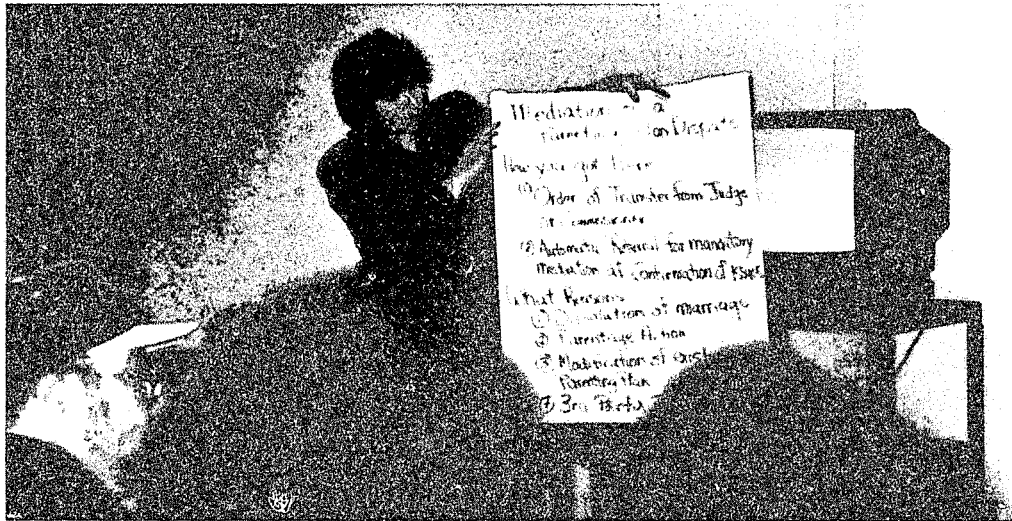 Mediation a
Dispute
How you got here
① Order of Transfer from Judge
or Commissioner
② Automatic Referral for manditory
mediation at Confirmation of Issues
What Reasons
① Dissolution of marriage
② Parentage Action
③ Modification of
Parenting Plan
④ 3rd Party